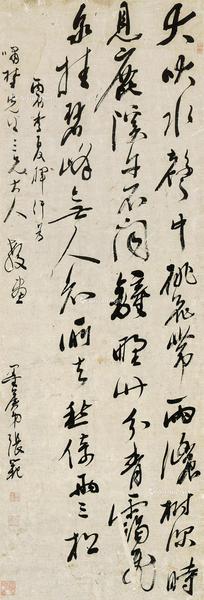 犬吠水聲中桃花帶雨濃樹深時
見鹿溪午不聞鐘野竹分青靄飛
泉挂碧峰無人知所去愁倚兩三松
季夏
三兄大人
張